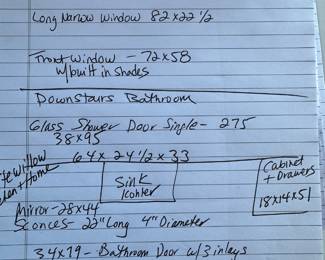 Long Narrow Window 82x22 1/2
Front Window - 72x58
w/built in Shades
Downstairs Bathroom
Glass Shower Door Single - 275
38x95
64x24 1/2 x 33
Sink
Cabinet
+ Drawers
18x14x51
Mirror - 28x44
Sconces - 22" Long 4" Diameter
34x79 - Bathroom Door w/3 inlays